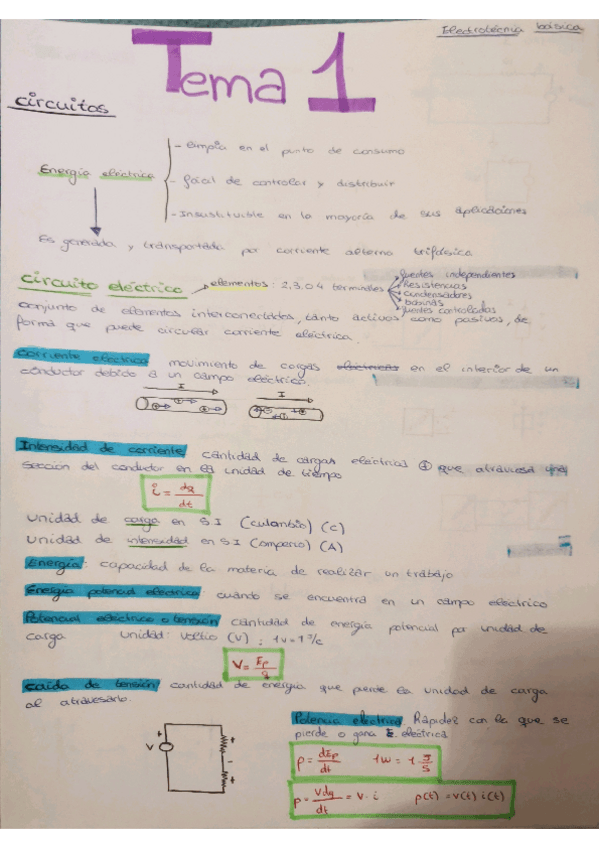 Electrotécnia básica
Tema 1
circuitos
- limpia en el punto de consumo
Energía eléctrica
- fácil de controlar y distribuir
- Insustituible en la mayoría de sus aplicaciones
Es generada y transportada por corriente alterna trifásica.
circuito eléctrico → elementos: 2, 3, o 4 terminales
fuentes independientes
Resistencias
condensadores
bobinas
fuentes controladas
conjunto de elementos interconectados, tanto activos como pasivos, de
forma que puede circular corriente eléctrica.
Corriente eléctrica movimiento de cargas eléctricas en el interior de un
conductor debido a un campo eléctrico.
I I
Intensidad de corriente cantidad de cargas eléctricas + que atraviesa una
sección del conductor en la unidad de tiempo
i = dq/dt
unidad de carga en S.I (culombio) (C)
unidad de intensidad en S.I (amperio) (A)
Energía: capacidad de la materia de realizar un trabajo
Energía potencial eléctrica: cuando se encuentra en un campo eléctrico
Potencial eléctrico o tensión cantidad de energía potencial por unidad de
carga unidad: Voltio (V) : 1v = 1 J/c
V = Ep/q
caida de tensión cantidad de energía que pierde la unidad de carga
al atravesarlo.
Potencia eléctrica Rapidez con la que se
pierde o gana E. eléctrica
V + + - + -
p = dEp/dt 1w = 1 J/s
p = Vdq/dt = v · i p(t) = v(t) i(t)